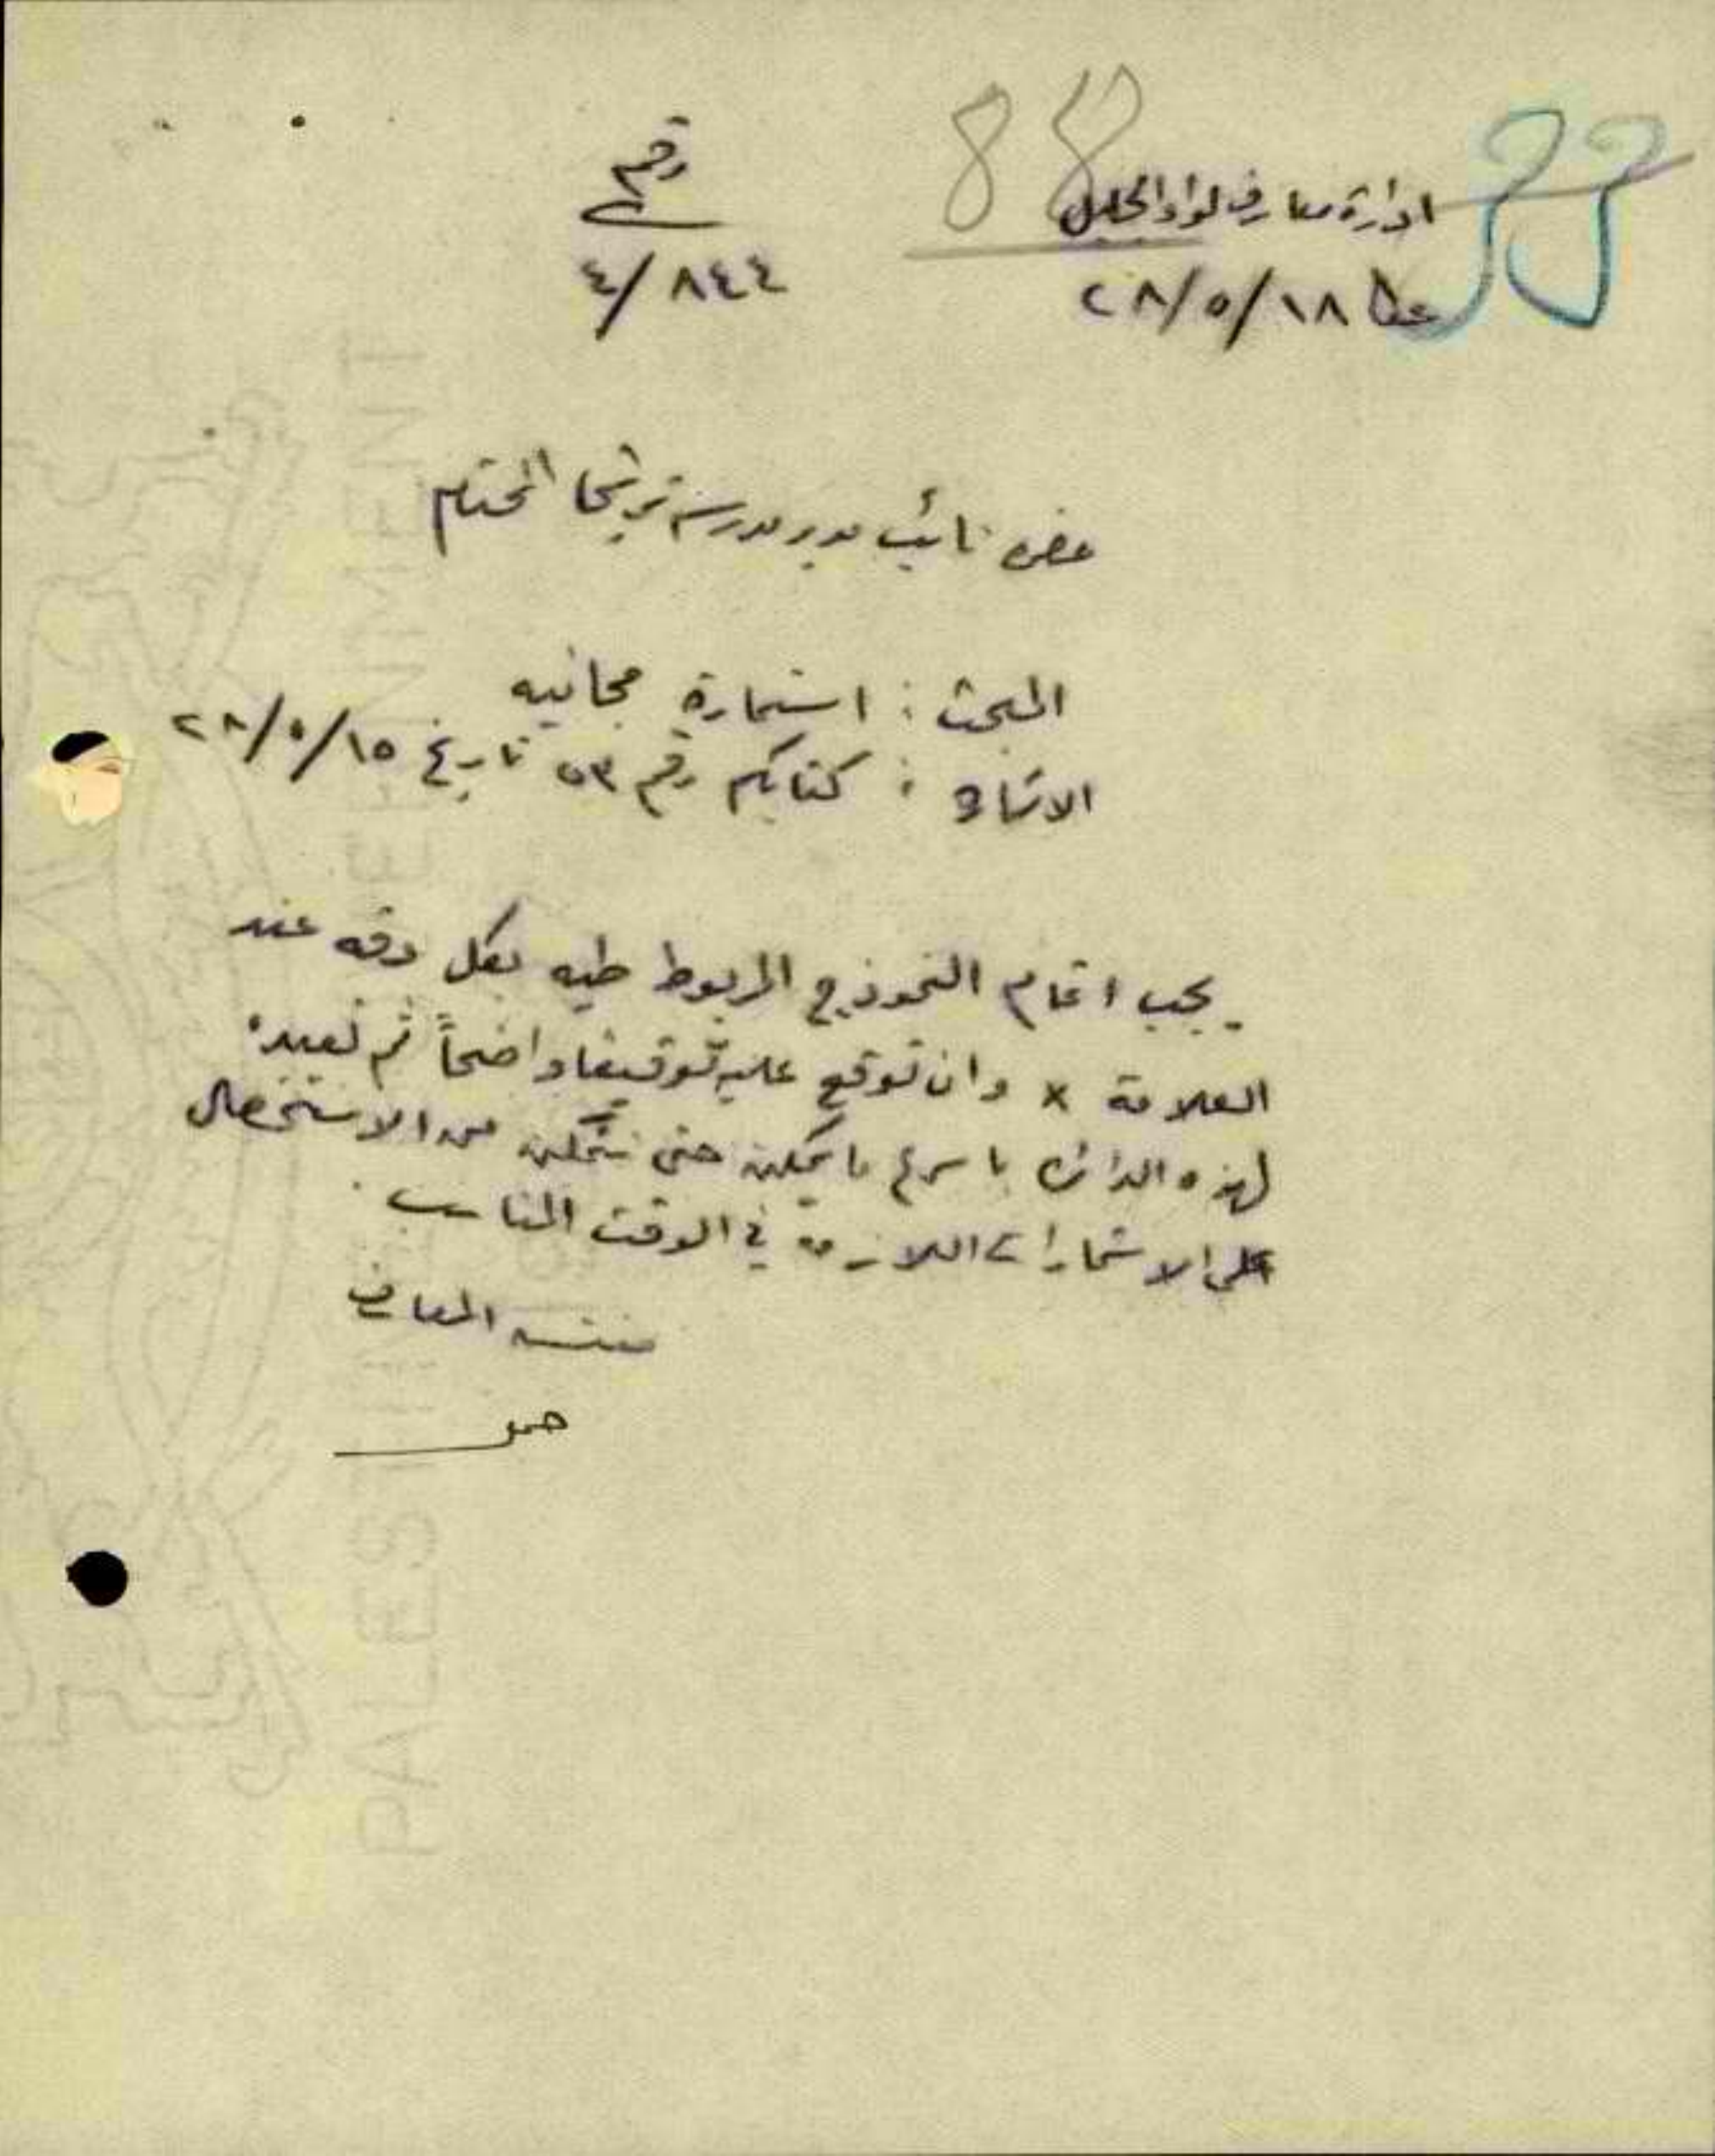 88
ادارة معارف لواء الجليل
رقم
عكا ١٨/٥/٢٨
٤/٨٤٤
حضرة نائب مدير مدرسة ترشيحا المحترم
المبحث : استمارة مجانيه
الاشارة : كتابكم رقم ٥٣ تاريخ ١٥/٥/٢٨
يجب اتمام النموذج المربوط طيه بكل دقه عند
العلامة x وان توقع عليه توقيعا واضحاً ثم تعيده
لهذه الدائرة باسرع ما يمكن حتى نتمكن من الاستحصال
على الاستمارات اللازمة في الوقت المناسب .
مفتش المعارف
PALESTINE GOVERNMENT